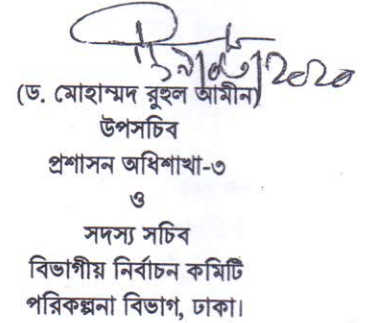 (ড. মোহাম্মদ রুহুল আমীন)
উপসচিব
প্রশাসন অধিশাখা-৩
ও
সদস্য সচিব
বিভাগীয় নির্বাচন কমিটি
পরিকল্পনা বিভাগ, ঢাকা।